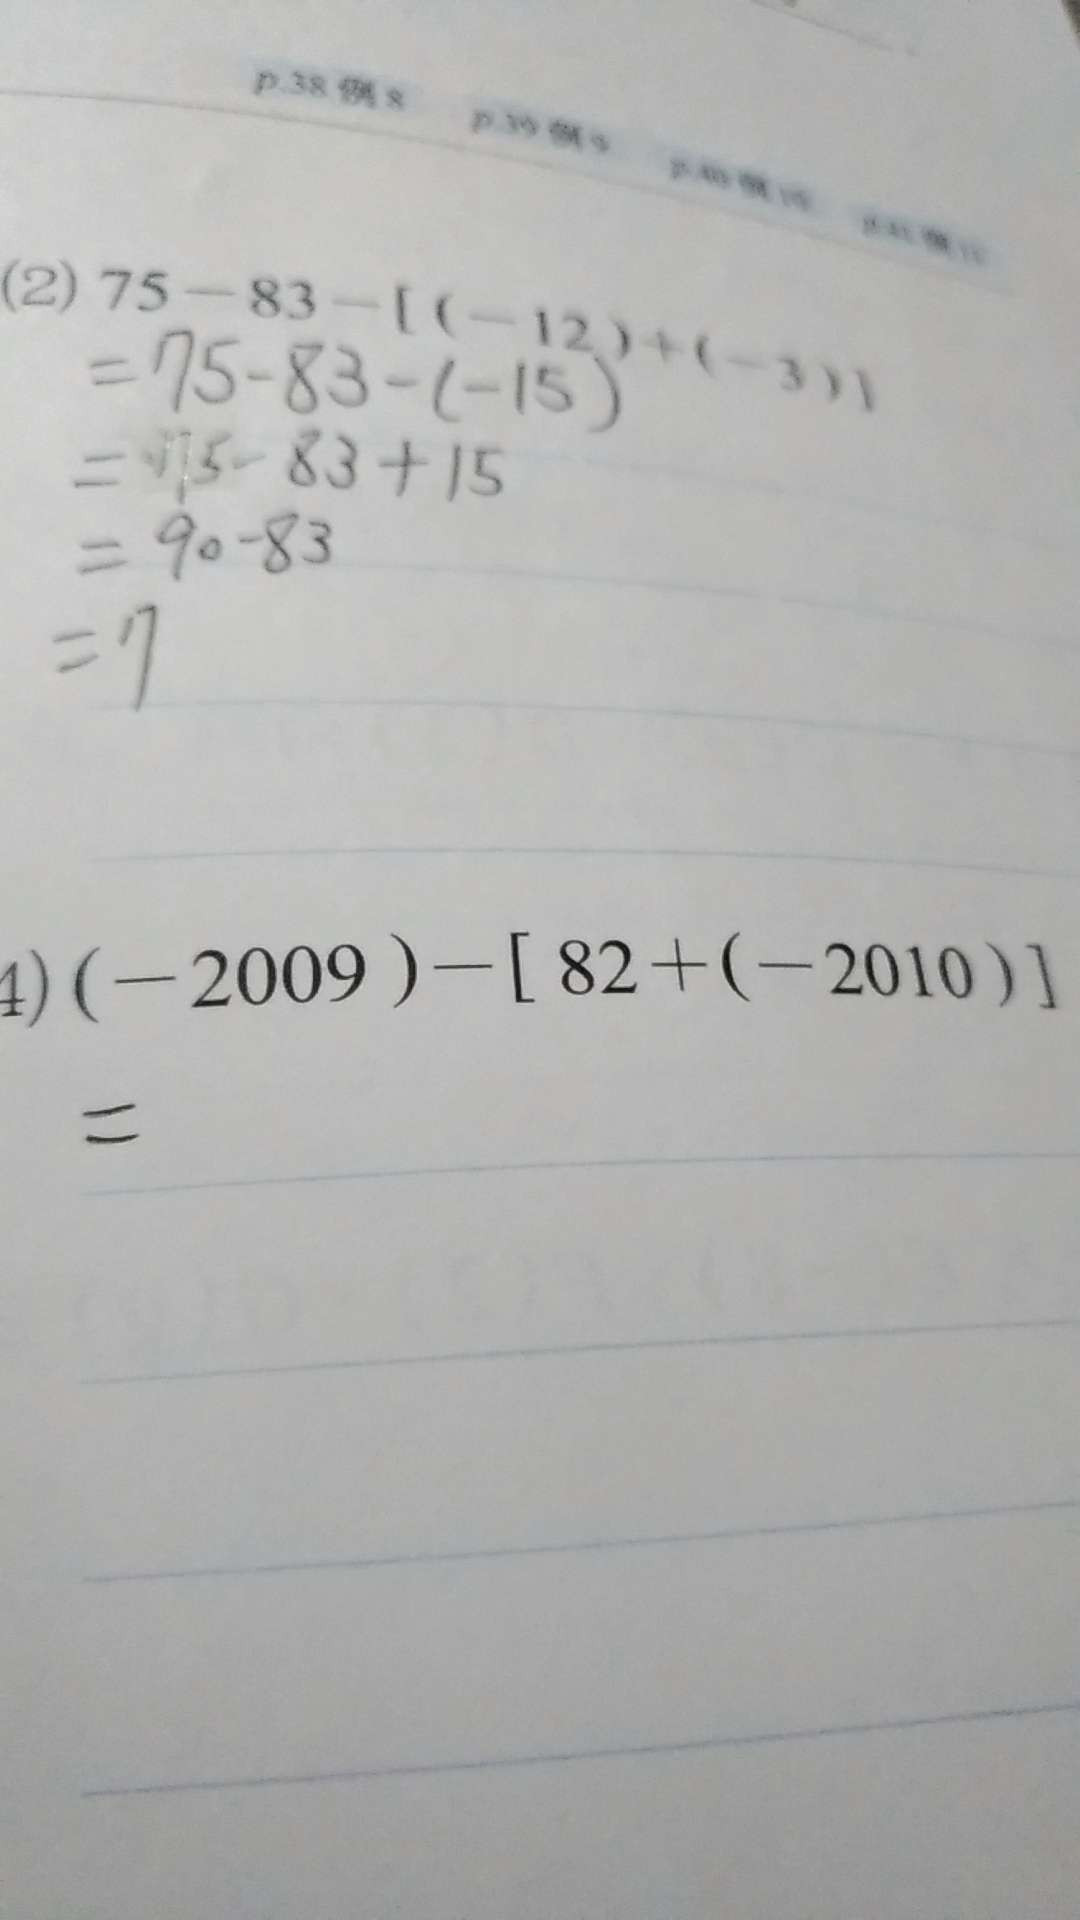 p.38 例 8 p.39 例 9 p.40 例 10 p.41 例 11
(2) 75-83-[(-12)+(-3)]
=75-83-(-15)
=75-83+15
=90-83
=7
4) (-2009)-[82+(-2010)]
=